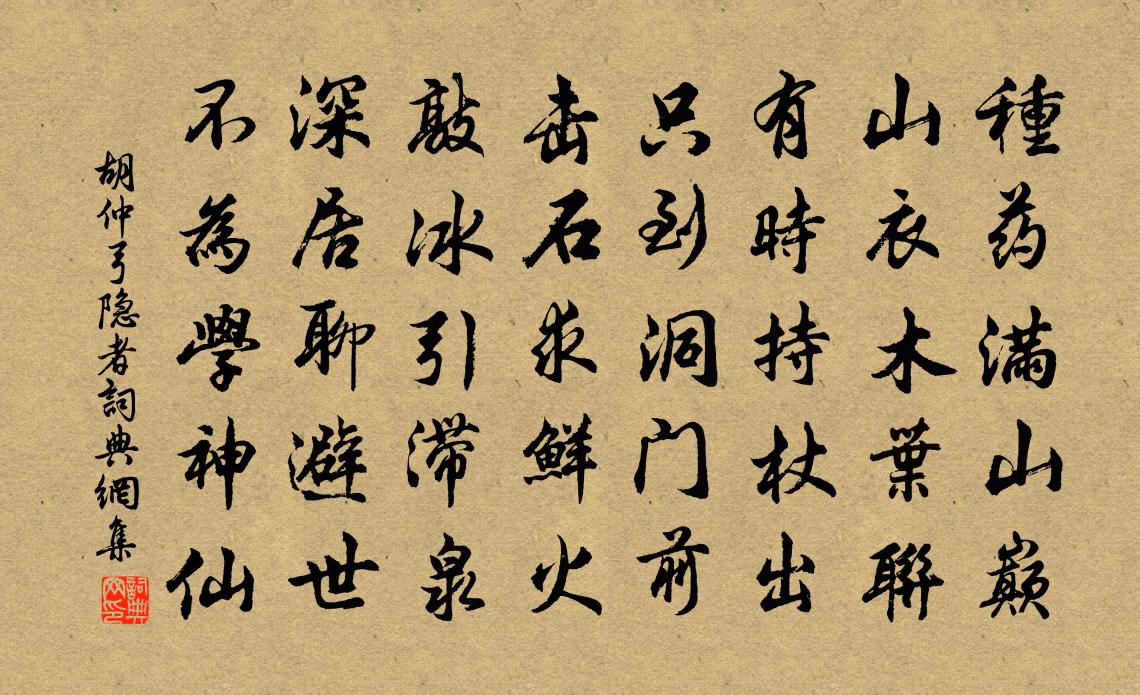 種药滿山巔
山衣木葉聯
有時持杖出
只到洞门前
击石求鮮火
敲冰引滞泉
深居聊避世
不為學神仙
胡仲弓隐者詞典網集
詞典网印